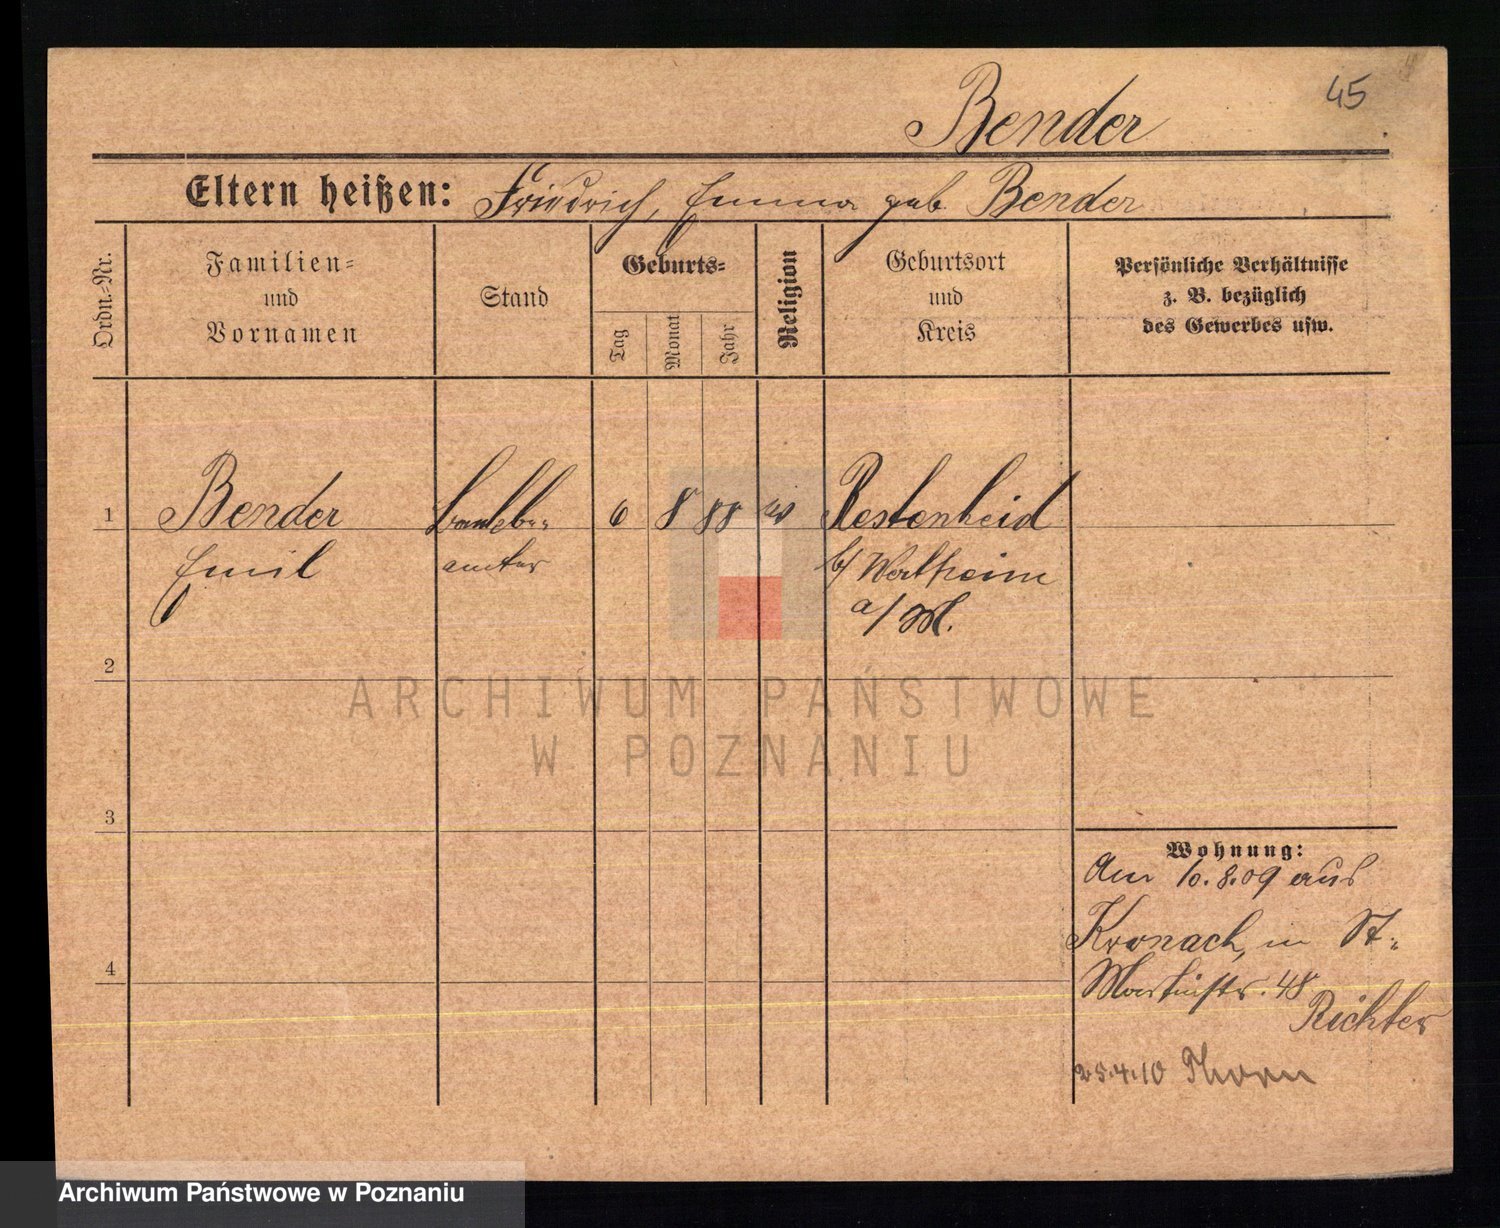 45
Bender
Eltern heißen: Friedrich, Emma geb. Bender
Ordn.-Nr.
Familien-
und
Vornamen
Stand
Geburts-
Tag
Monat
Jahr
Religion
Geburtsort
und
Kreis
Persönliche Verhältnisse
z. B. bezüglich
des Gewerbes usw.
1 Bender 6 8 88 Restenheid
Emil amter b/ Wertheim
a/M.
2
3
4
Wohnung:
Am 10.8.09 aus
Kronach, in St-
Martinstr. 48
Richter
25.4.10 Thorn
ARCHIWUM PAŃSTWOWE
W POZNANIU
Archiwum Państwowe w Poznaniu